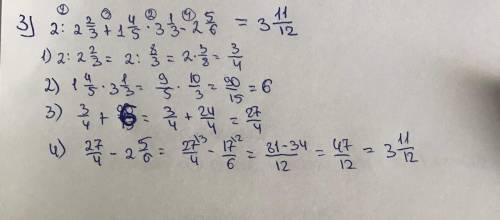 ① ③ ② ④
3) 2 : 2 2/3 + 1 4/5 · 3 1/3 - 2 5/6 = 3 11/12
1) 2 : 2 2/3 = 2 : 8/3 = 2 · 3/8 = 3/4
2) 1 4/5 · 3 1/3 = 9/5 · 10/3 = 90/15 = 6
3) 3/4 + 6 = 3/4 + 24/4 = 27/4
4) 27/4 - 2 5/6 = 27/4 \3 - 17/6 \2 = 81-34/12 = 47/12 = 3 11/12